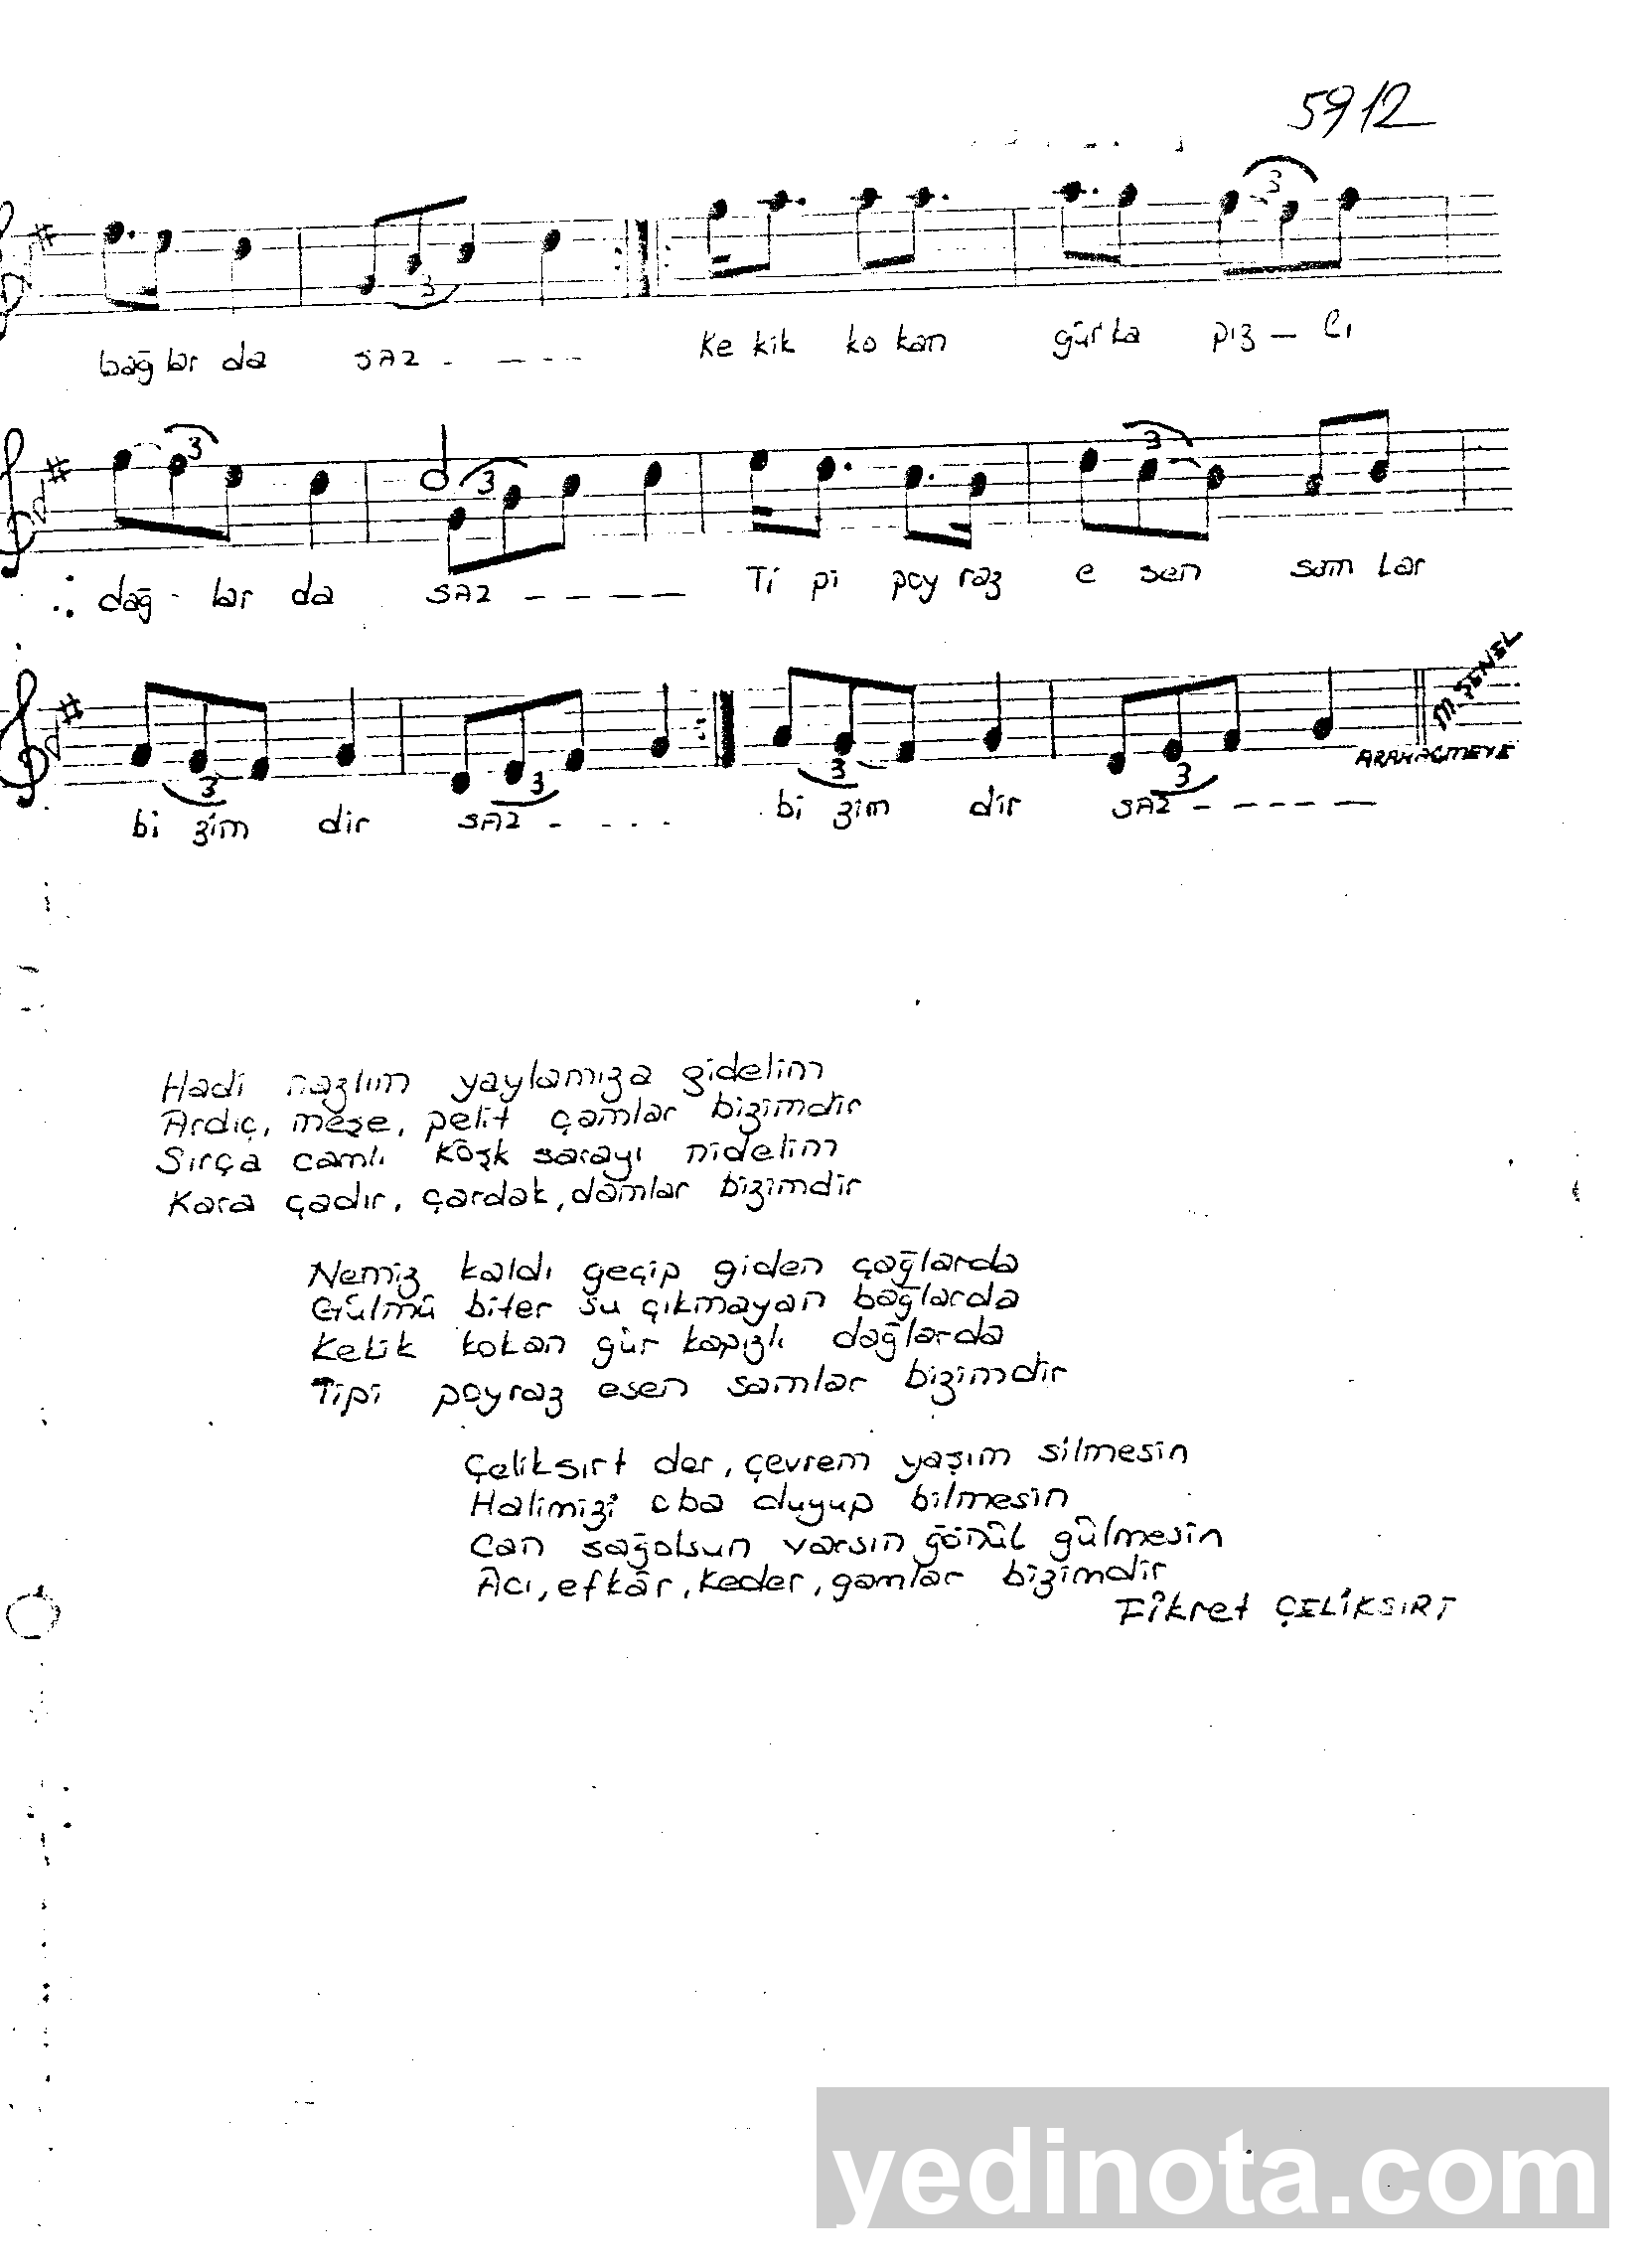 5912
3
3
bağ lar da SAZ - - - - - Ke kik ko kan gür ka pız - lı
3 3 3
dağ - lar da SAZ - - - - - Ti pi poy raz e sen sam lar
M. ŞENEL
3 3 3 3
ARANAĞMEYE
bi zim dir SAZ - - - - bi zim dir SAZ - - - - -
Hadi nazlım yaylamıza gidelim
Ardıç, meşe, pelit çamlar bizimdir
Sırça camlı köşk sarayı nidelim
Kara çadır, çardak, damlar bizimdir
Nemiz kaldı geçip giden çağlarda
Gülmü biter su çıkmayan bağlarda
Kekik kokan gür kapızlı dağlarda
Tipi poyraz esen samlar bizimdir
Çeliksırt der, çevrem yaşım silmesin
Halimizi oba duyup bilmesin
Can sağolsun varsın gönül gülmesin
Acı, efkâr, keder, gamlar bizimdir
Fikret ÇELİKSIRT
yedinota.com